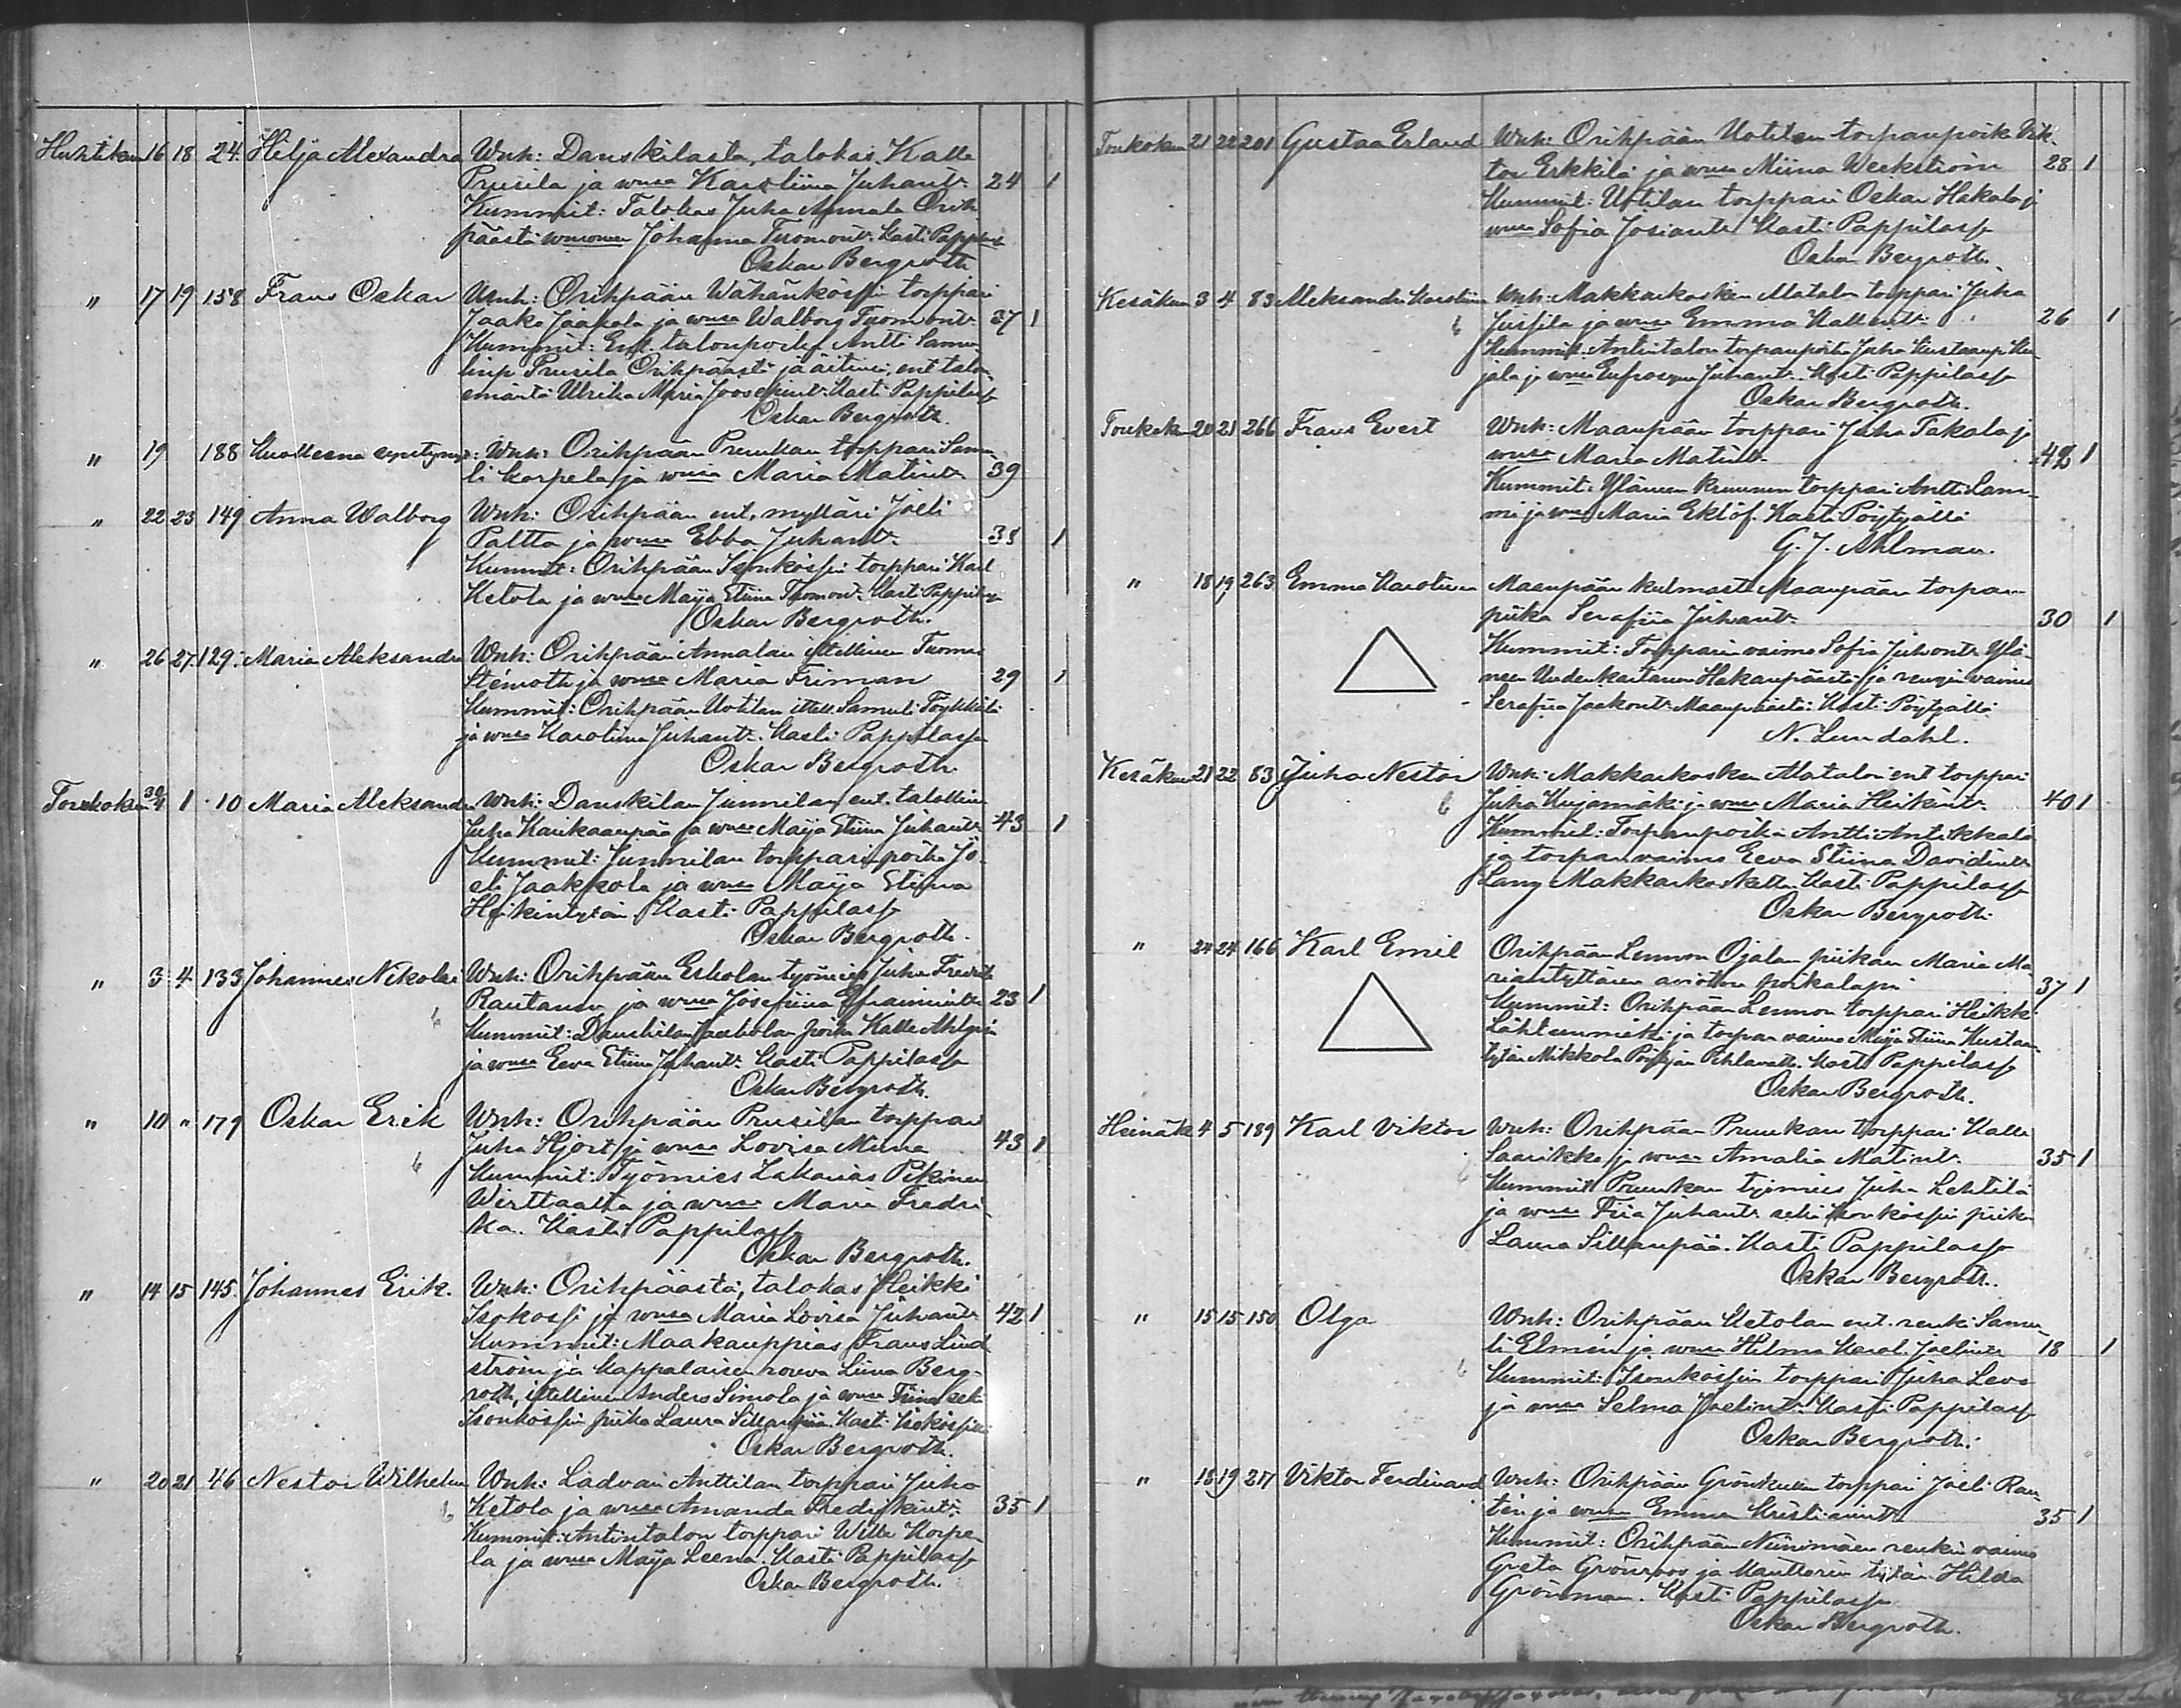 Huhtikuu 16 18 24. Hilja Alexandra Wnh: Danskilasta, talokas Kalle
Prusila ja wmsa Karoliina Juhant. 24 1
Kummit: Talokas Juha Annala Orih
päästä Johanna Tuomont. Kasti Pappilass
Oskar Bergroth
" 17 19 158 Frans Oskar Wnh: Orihpään Wähänkössin torppari
Jaako Jaakola ja wmsa Walborg Tuomont. 37 1
Kummit: Ent. talonpoika Antti Samu
linp. Prusila Orihpäästä ja äitinsä, ent. talon
emäntä Ulrika Maria Joosepint. Kasti Pappilass
Oskar Bergroth.
" 19 188 Kuolleena syntynyt: Wnh: Orihpään Prunkan torppari Samu
li Korpela ja wmsa Maria Matint. 39
" 22 23 149 Anna Walborg Wnh: Orihpään ent. mylläri Joeli
Paltta ja wmsa Ebba Juhant. 38 1
Kummit: Orihpään Isonkössin torppari Karl
Ketola ja wmsa Maija Stiina Tuomont. Kasti Pappilass
Oskar Bergroth.
" 26 27 129. Maria Aleksandra Wnh: Orihpään Annalan itsellinen Tuomas
Stenroth ja wmsa Maria Friman 29 1
Kummit: Orihpään Uotilan itsell. Samuli Töykkälä
ja wmsa Karoliina Juhant. Kasti Pappilassa
Oskar Bergroth.
Toukokuu 30/4 1 10 Maria Aleksandra Wnh: Danskilan Junnilan ent. talollinen
Juha Karikaanpää ja wmsa Maija Stiina Juhant. 43 1
Kummit: Junnilan torpparinpoika Jo
eli Jaakkola ja wmsa Maija Stiina
Heikintytär. Kasti Pappilass
Oskar Bergroth.
" 3 4 133 Johannes Nikolai Wnh: Orihpään Eskolan työmies Juha Fredrik
Rautanen ja wmsa Josefiina Efraimint. 23 1
Kummit: Danskilan Jaakolan poika Kalle Ahlgren
ja wmsa Eeva Stiina Juhant. Kasti Pappilass
Oskar Bergroth.
" 10 " 179 Oskar Erik Wnh: Orihpään Prusilan torppari
Juha Hjort ja wmsa Lovisa Miina 43 1
Kummit: Työmies Sakarias Pikinen
Wirttaalta ja wmsa Maria Fredri
ka. Kasti Pappilass
Oskar Bergroth.
" 14 15 145. Johannes Erik. Wnh: Orihpäästä, talokas Heikki
Isokössi ja wmsa Maria Lovisa Juhant. 42 1
Kummit: Maakauppias Frans Lind
ström ja kappalaisen rouva Liina Berg-
roth, itsellinen Anders Simola ja wmsa Fiina sekä
Isonkössin piika Laura Sillanpää. Kasti Isokössillä
Oskar Bergroth.
" 20 21 46 Nestor Wilhelm Wnh: Ladvan Anttilan torppari Juha
Ketola ja wmsa Amanda Fredrikint. 35 1
Kummit: Antintalon torppari Wille Korpe
la ja wmsa Maija Leena. Kasti Pappilass
Oskar Bergroth.
Toukokuu 21 22 201 Gustaa Erland Wnh: Orihpään Uotilan torpanpoika Vik-
tor Erkkilä ja wmsa Miina Weckström 28 1
Kummit: Uotilan torppari Oskar Hakala ja
wmsa Sofia Josiant. Kasti Pappilass
Oskar Bergroth.
Kesäkuu 3 4 83 Aleksandra Karoliina Wnh: Makkarkosken Alatalon torppari Juha
Jussila ja wmsa Emma Kallent. 26 1
Kummit: Antintalon torpanpoika Juha Kustaanp. Ku
jala ja wmsa Eufrosyna Juhant. Kasti Pappilass
Oskar Bergroth.
Toukokuu 20 21 266 Frans Evert Wnh: Maanpään torppari Juha Takala ja
wmsa Maria Matint. 42 1
Kummit: Yläneen Kruunun torppari Antti Lam-
mi ja wmsa Maria Eklöf. Kasti Pöytyällä
G. J. Ahlman.
" 18 19 263 Emma Karoliina Maanpään kulmasta Maanpään torpan
piika Serafiia Juhant. 30 1
Kummit: Torpparin vaimo Sofia Juhont. Ylä-
neen Uudenkartanon Hakanpäästä ja rengin vaimo
Serafiia Jaakont. Maanpäästä: Kasti Pöytyällä
N. Lundahl.
Kesäkuu 21 22 83 Juha Nestor Wnh: Makkarkosken Alatalon ent. torppari
Juha Kujamäki ja wmsa Maria Heikint. 40 1
Kummit: Torpanpoika Antti Antikkala
ja torpan vaimo Eeva Stiina Davidint.
Lang Makkarkoskelta. Kasti Pappilass
Oskar Bergroth.
" 24 24 166 Karl Emil Orihpään Lennon Ojalan piikan Maria Ma
riantyttären avioton poikalapsi 37 1
Kummit: Orihpään Lennon torppari Heikki
Lähteenmäki ja torpan vaimo Maija Stiina Kustaan-
tytär Mikkola Pöytyän Pihlavalta. Kasti Pappilass
Oskar Bergroth.
Heinäk. 4 5 189 Karl Viktor Wnh: Orihpään Prunkan torppari Kalle
Saarikko ja wmsa Amalia Matint. 35 1
Kummit: Prunkan työmies Juha Lehtilä
ja wmsa Fiia Juhant. sekä Isonkössin piika
Laura Sillanpää. Kasti Pappilass
Oskar Bergroth.
" 15 15 150 Olga Wnh: Orihpään Ketolan ent. renki Samu-
li Elmén ja wmsa Hilma Karol. Joelint. 18 1
Kummit: Isonkössin torppari Juha Levo
ja wmsa Selma Joelint. Kasti Pappilass
Oskar Bergroth.
" 18 19 217 Viktor Ferdinand Wnh: Orihpään Grönkullan torppari Joeli Ran
tén ja wmsa Emma Kristianint. 35 1
Kummit: Orihpään Niinimäen renkin vaimo
Greta Grönroos ja kanttorin tytär Hilda
Grönman. Kasti Pappilass
Oskar Bergroth.